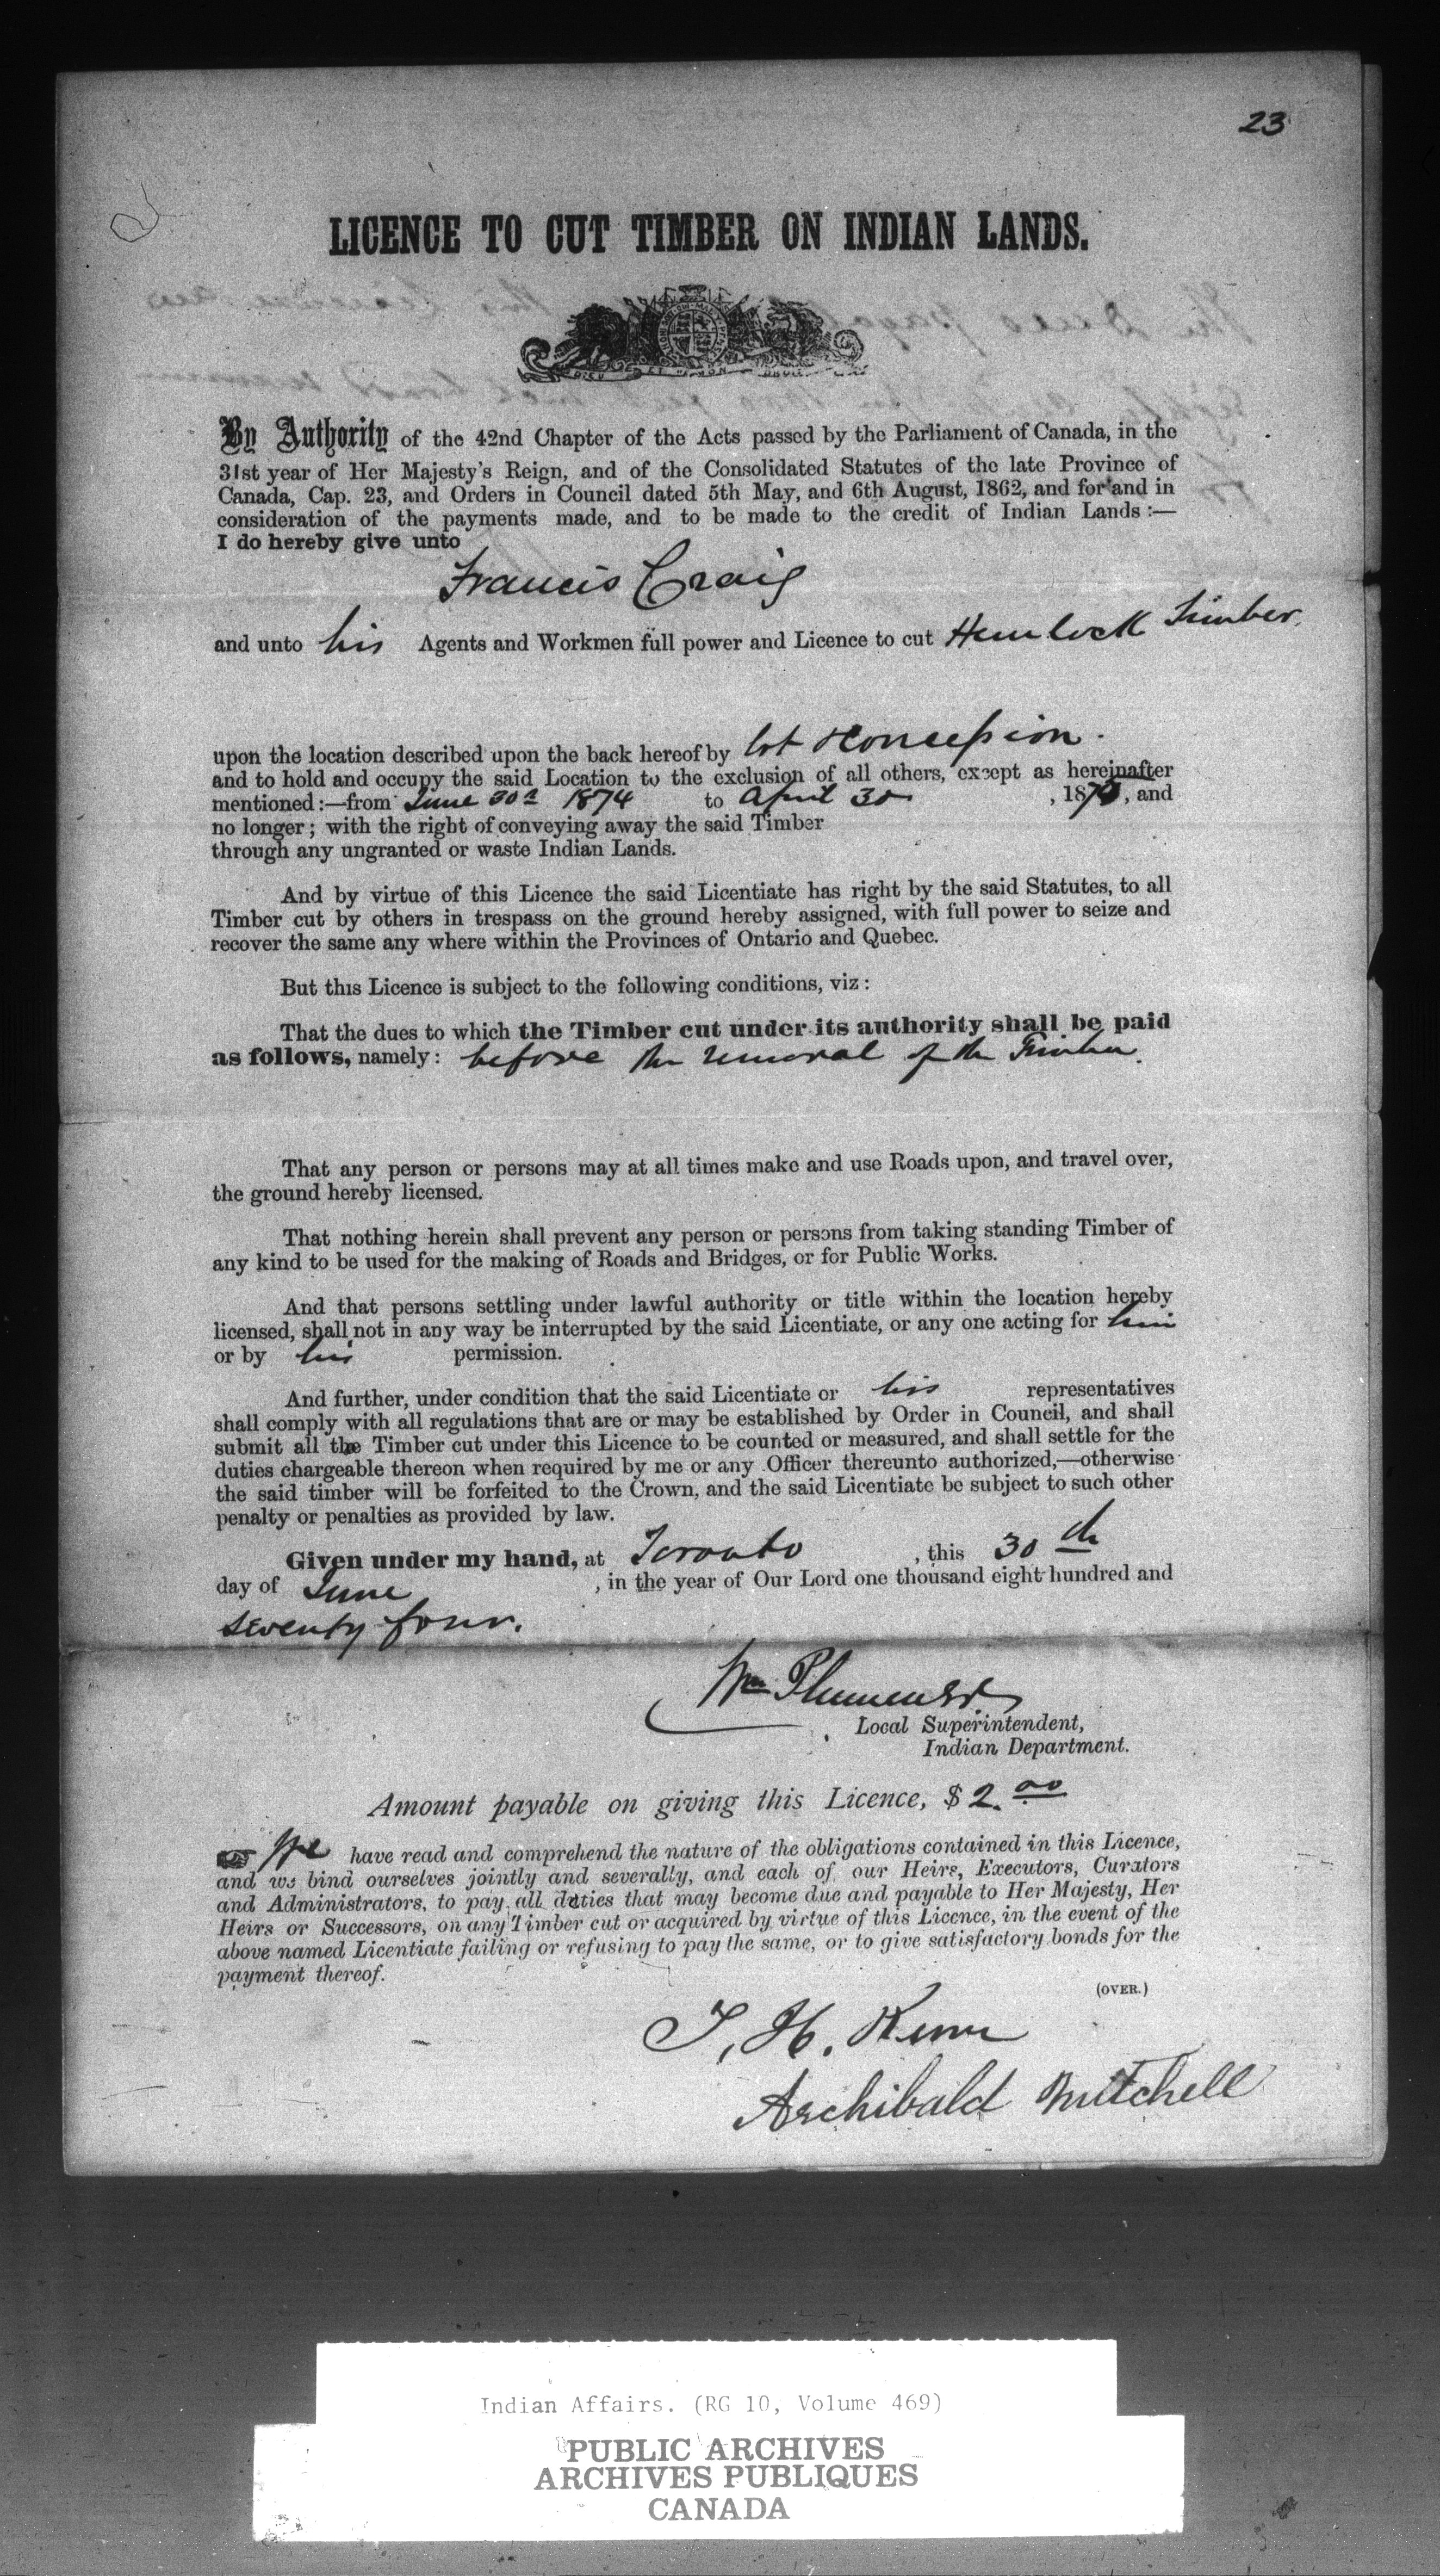 23
LICENCE TO CUT TIMBER ON INDIAN LANDS.
DIEU ET MON DROIT
By Authority of the 42nd Chapter of the Acts passed by the Parliament of Canada, in the
31st year of Her Majesty's Reign, and of the Consolidated Statutes of the late Province of
Canada, Cap. 23, and Orders in Council dated 5th May, and 6th August, 1862, and for and in
consideration of the payments made, and to be made to the credit of Indian Lands :—
I do hereby give unto
Francis Craig
and unto his Agents and Workmen full power and Licence to cut Hemlock Timber
upon the location described upon the back hereof by lot & Concession.
and to hold and occupy the said Location to the exclusion of all others, except as hereinafter
mentioned :—from June 30th 1874 to April 30 , 1875, and
no longer ; with the right of conveying away the said Timber
through any ungranted or waste Indian Lands.
And by virtue of this Licence the said Licentiate has right by the said Statutes, to all
Timber cut by others in trespass on the ground hereby assigned, with full power to seize and
recover the same any where within the Provinces of Ontario and Quebec.
But this Licence is subject to the following conditions, viz :
That the dues to which the Timber cut under its authority shall be paid
as follows, namely : before the removal of the Timber.
That any person or persons may at all times make and use Roads upon, and travel over,
the ground hereby licensed.
That nothing herein shall prevent any person or persons from taking standing Timber of
any kind to be used for the making of Roads and Bridges, or for Public Works.
And that persons settling under lawful authority or title within the location hereby
licensed, shall not in any way be interrupted by the said Licentiate, or any one acting for him
or by his permission.
And further, under condition that the said Licentiate or his representatives
shall comply with all regulations that are or may be established by Order in Council, and shall
submit all the Timber cut under this Licence to be counted or measured, and shall settle for the
duties chargeable thereon when required by me or any Officer thereunto authorized,—otherwise
the said timber will be forfeited to the Crown, and the said Licentiate be subject to such other
penalty or penalties as provided by law.
Given under my hand, at Toronto , this 30th
day of June , in the year of Our Lord one thousand eight hundred and
seventy four.
Wm Plummer
Local Superintendent,
Indian Department.
Amount payable on giving this Licence, $ 2.00
We have read and comprehend the nature of the obligations contained in this Licence,
and we bind ourselves jointly and severally, and each of our Heirs, Executors, Curators
and Administrators, to pay all duties that may become due and payable to Her Majesty, Her
Heirs or Successors, on any Timber cut or acquired by virtue of this Licence, in the event of the
above named Licentiate failing or refusing to pay the same, or to give satisfactory bonds for the
payment thereof.
(OVER.)
T. H.
Archibald Mitchell
Indian Affairs. (RG 10, Volume 469)
PUBLIC ARCHIVES
ARCHIVES PUBLIQUES
CANADA